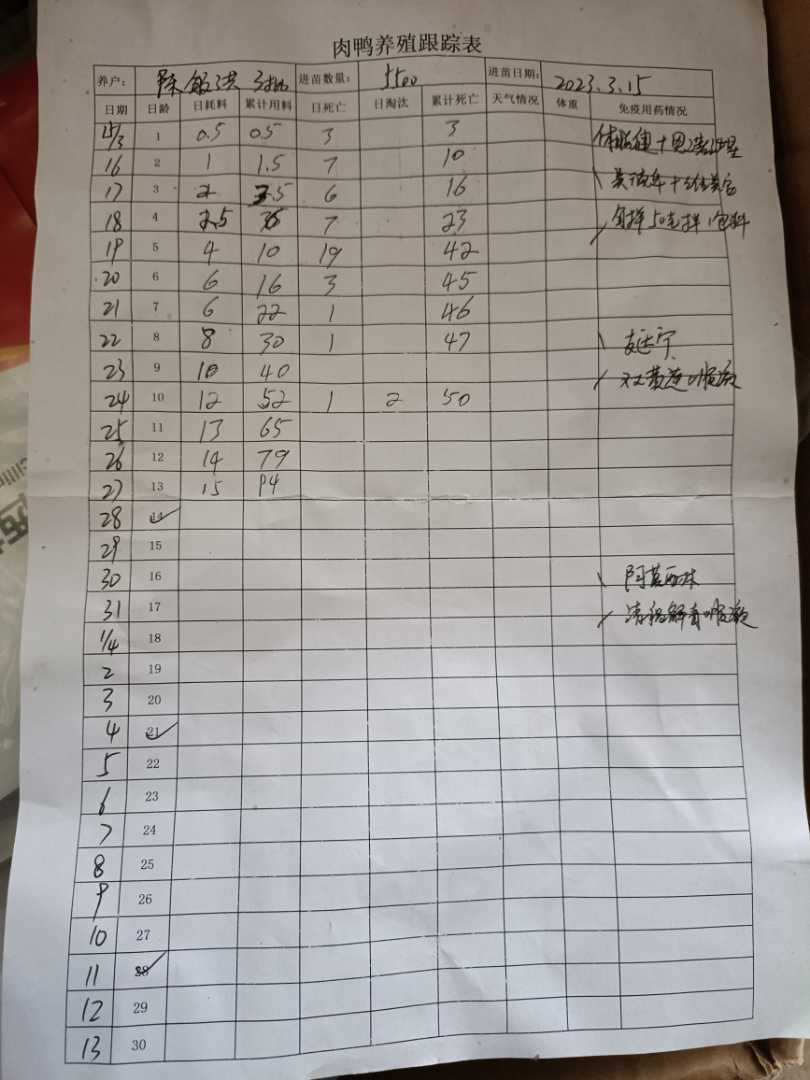 肉鸭养殖跟踪表
养户: 陈 洪 3批 进苗数量: 5500 进苗日期: 2023.3.15
日期 日龄 日耗料 累计用料 日死亡 日淘汰 累计死亡 天气情况 体重 免疫用药情况
15/3 1 0.5 0.5 3 3
16 2 1 1.5 7 10
17 3 2 3.5 6 16
18 4 2.5 7 23 50 1包料
19 5 4 10 19 42
20 6 6 16 3 45
21 7 6 22 1 46
22 8 8 30 1 47
23 9 10 40 双黄连口服液
24 10 12 52 1 2 50
25 11 13 65
26 12 14 79
27 13 15 94
28 14
29 15
30 16 阿莫西林
31 17 清瘟解毒口服液
1/4 18
2 19
3 20
4 21
5 22
6 23
7 24
8 25
9 26
10 27
11 28
12 29
13 30